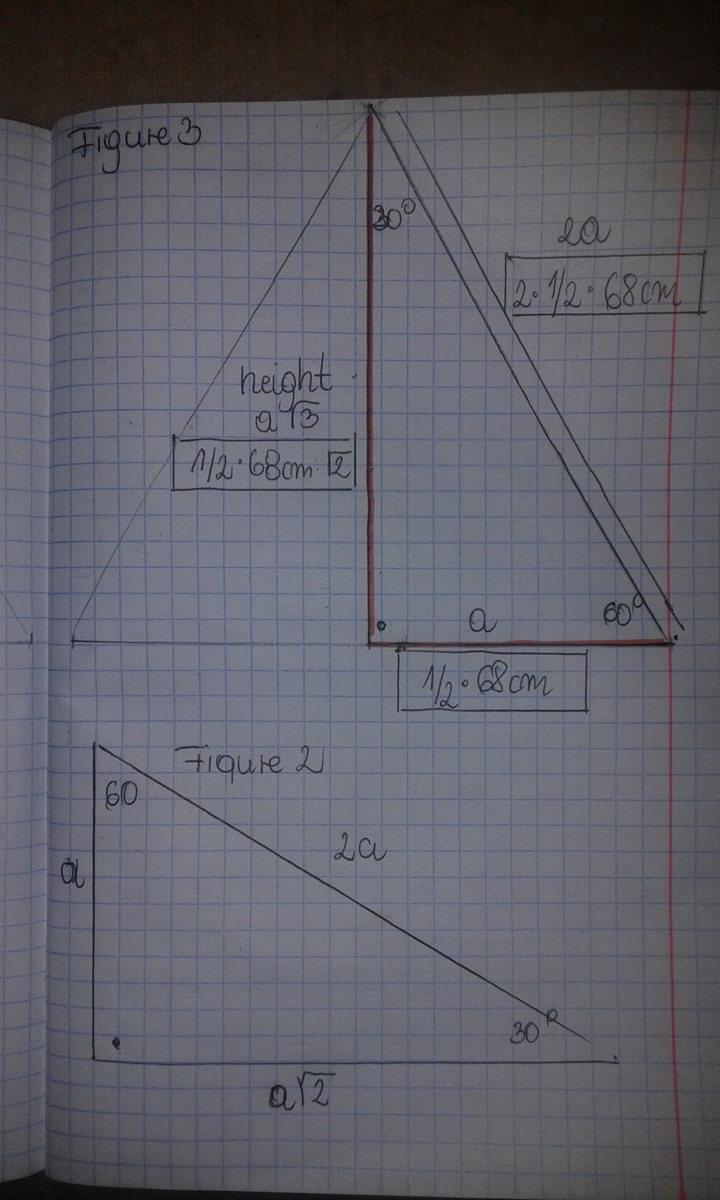 Figure 3
30°
2a
2·1/2·68cm
height
a√3
1/2·68cm·√2
60°
a
1/2·68cm
Figure 2
60
2a
a
30°
a√2